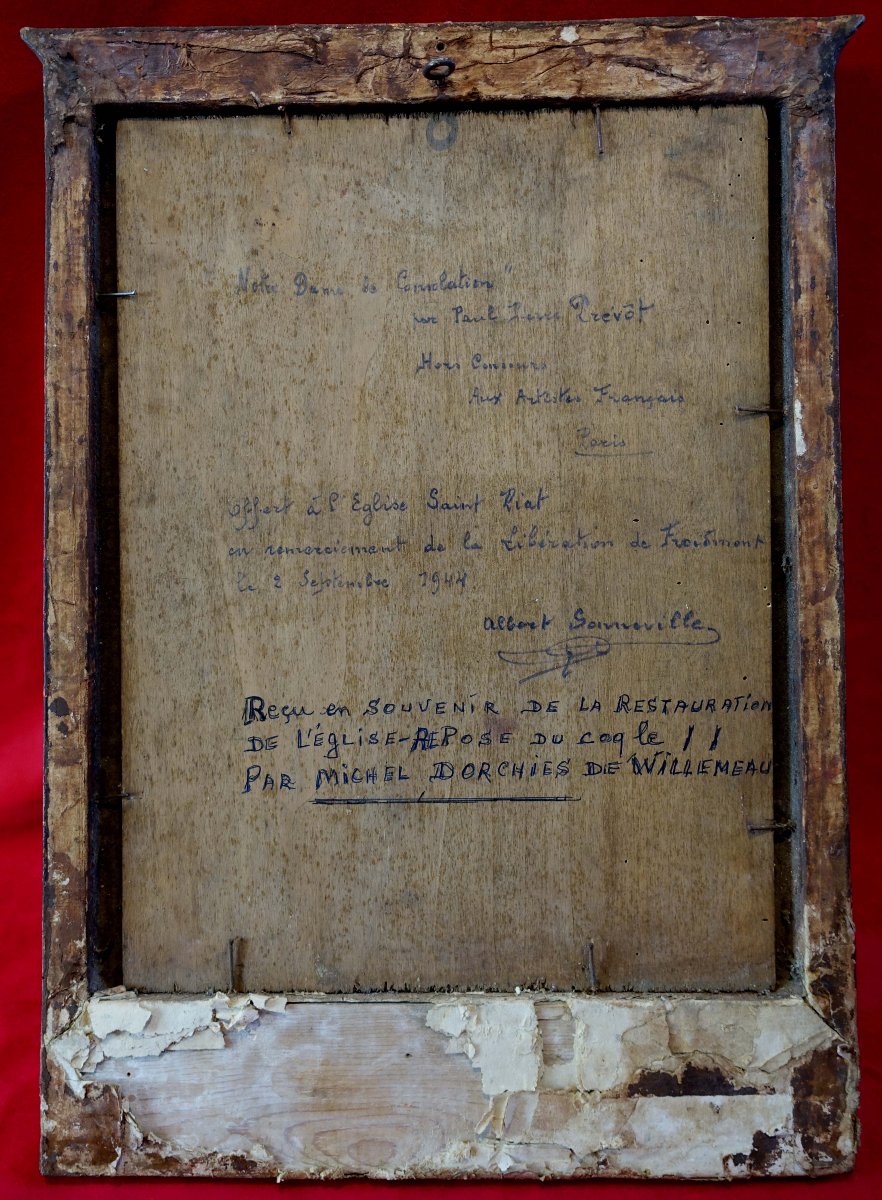 "Notre Dame de Consolation"
par Paul Pierre Prévôt
Hors Concours
Aux Artistes Français
Paris
Offert à l'Eglise Saint Piat
en remerciement de la Libération de Froidmont
le 2 Septembre 1944
Albert Sanneville
Reçu en SOUVENIR DE LA RESTAURATION
DE L'ÉGLISE-REPOSE DU COQ le / /
PAR MICHEL DORCHIES DE WILLEMEAU